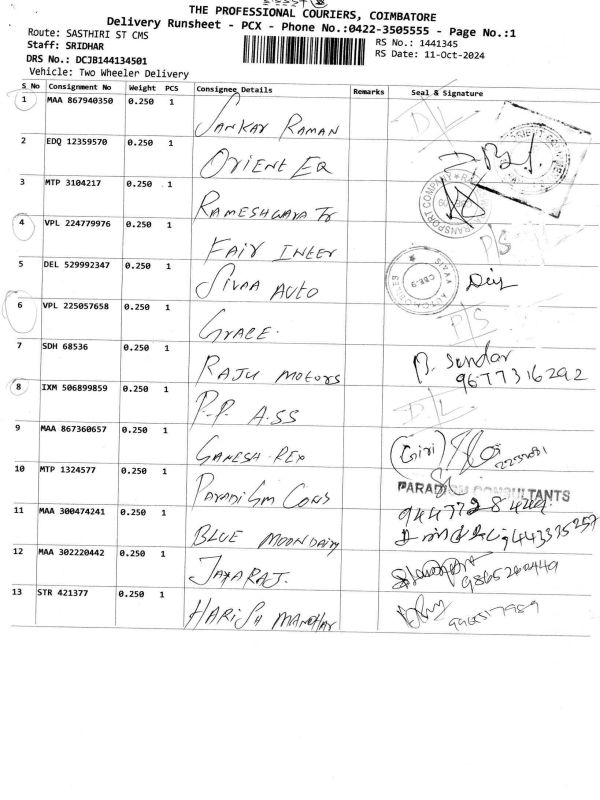 THE PROFESSIONAL COURIERS, COIMBATORE
Delivery Runsheet - PCX - Phone No.:0422-3505555 - Page No.:1
Route: SASTHIRI ST CMS
Staff: SRIDHAR
RS No.: 1441345
DRS No.: DCJB144134501
RS Date: 11-Oct-2024
Vehicle: Two Wheeler Delivery
S No Consignment No Weight PCS Consignee Details Remarks Seal & Signature
1 MAA 867940350 0.250 1 SANKAR RAMAN D/L
2 EDQ 12359570 0.250 1 ORIENT EQ
3 MTP 3104217 0.250 1 RAMESHWARA Tr
4 VPL 224779976 0.250 1 FAIR INTER D/S
5 DEL 529992347 0.250 1 SIVAA AUTO
6 VPL 225057658 0.250 1 GRACE. D/S
7 SDH 68536 0.250 1 RAJU MOTORS B. Sundar
9677316292
8 IXM 506899859 0.250 1 P.P. ASS D/L
9 MAA 867360657 0.250 1 GANESH REX (Giri)
10 MTP 1324577 0.250 1 PARADIGM CONS PARADIGM CONSULTANTS
11 MAA 300474241 0.250 1 BLUE MOON DAIRY
12 MAA 302220442 0.250 1 JAYARAJ.
13 STR 421377 0.250 1 HARISH MANOHAR